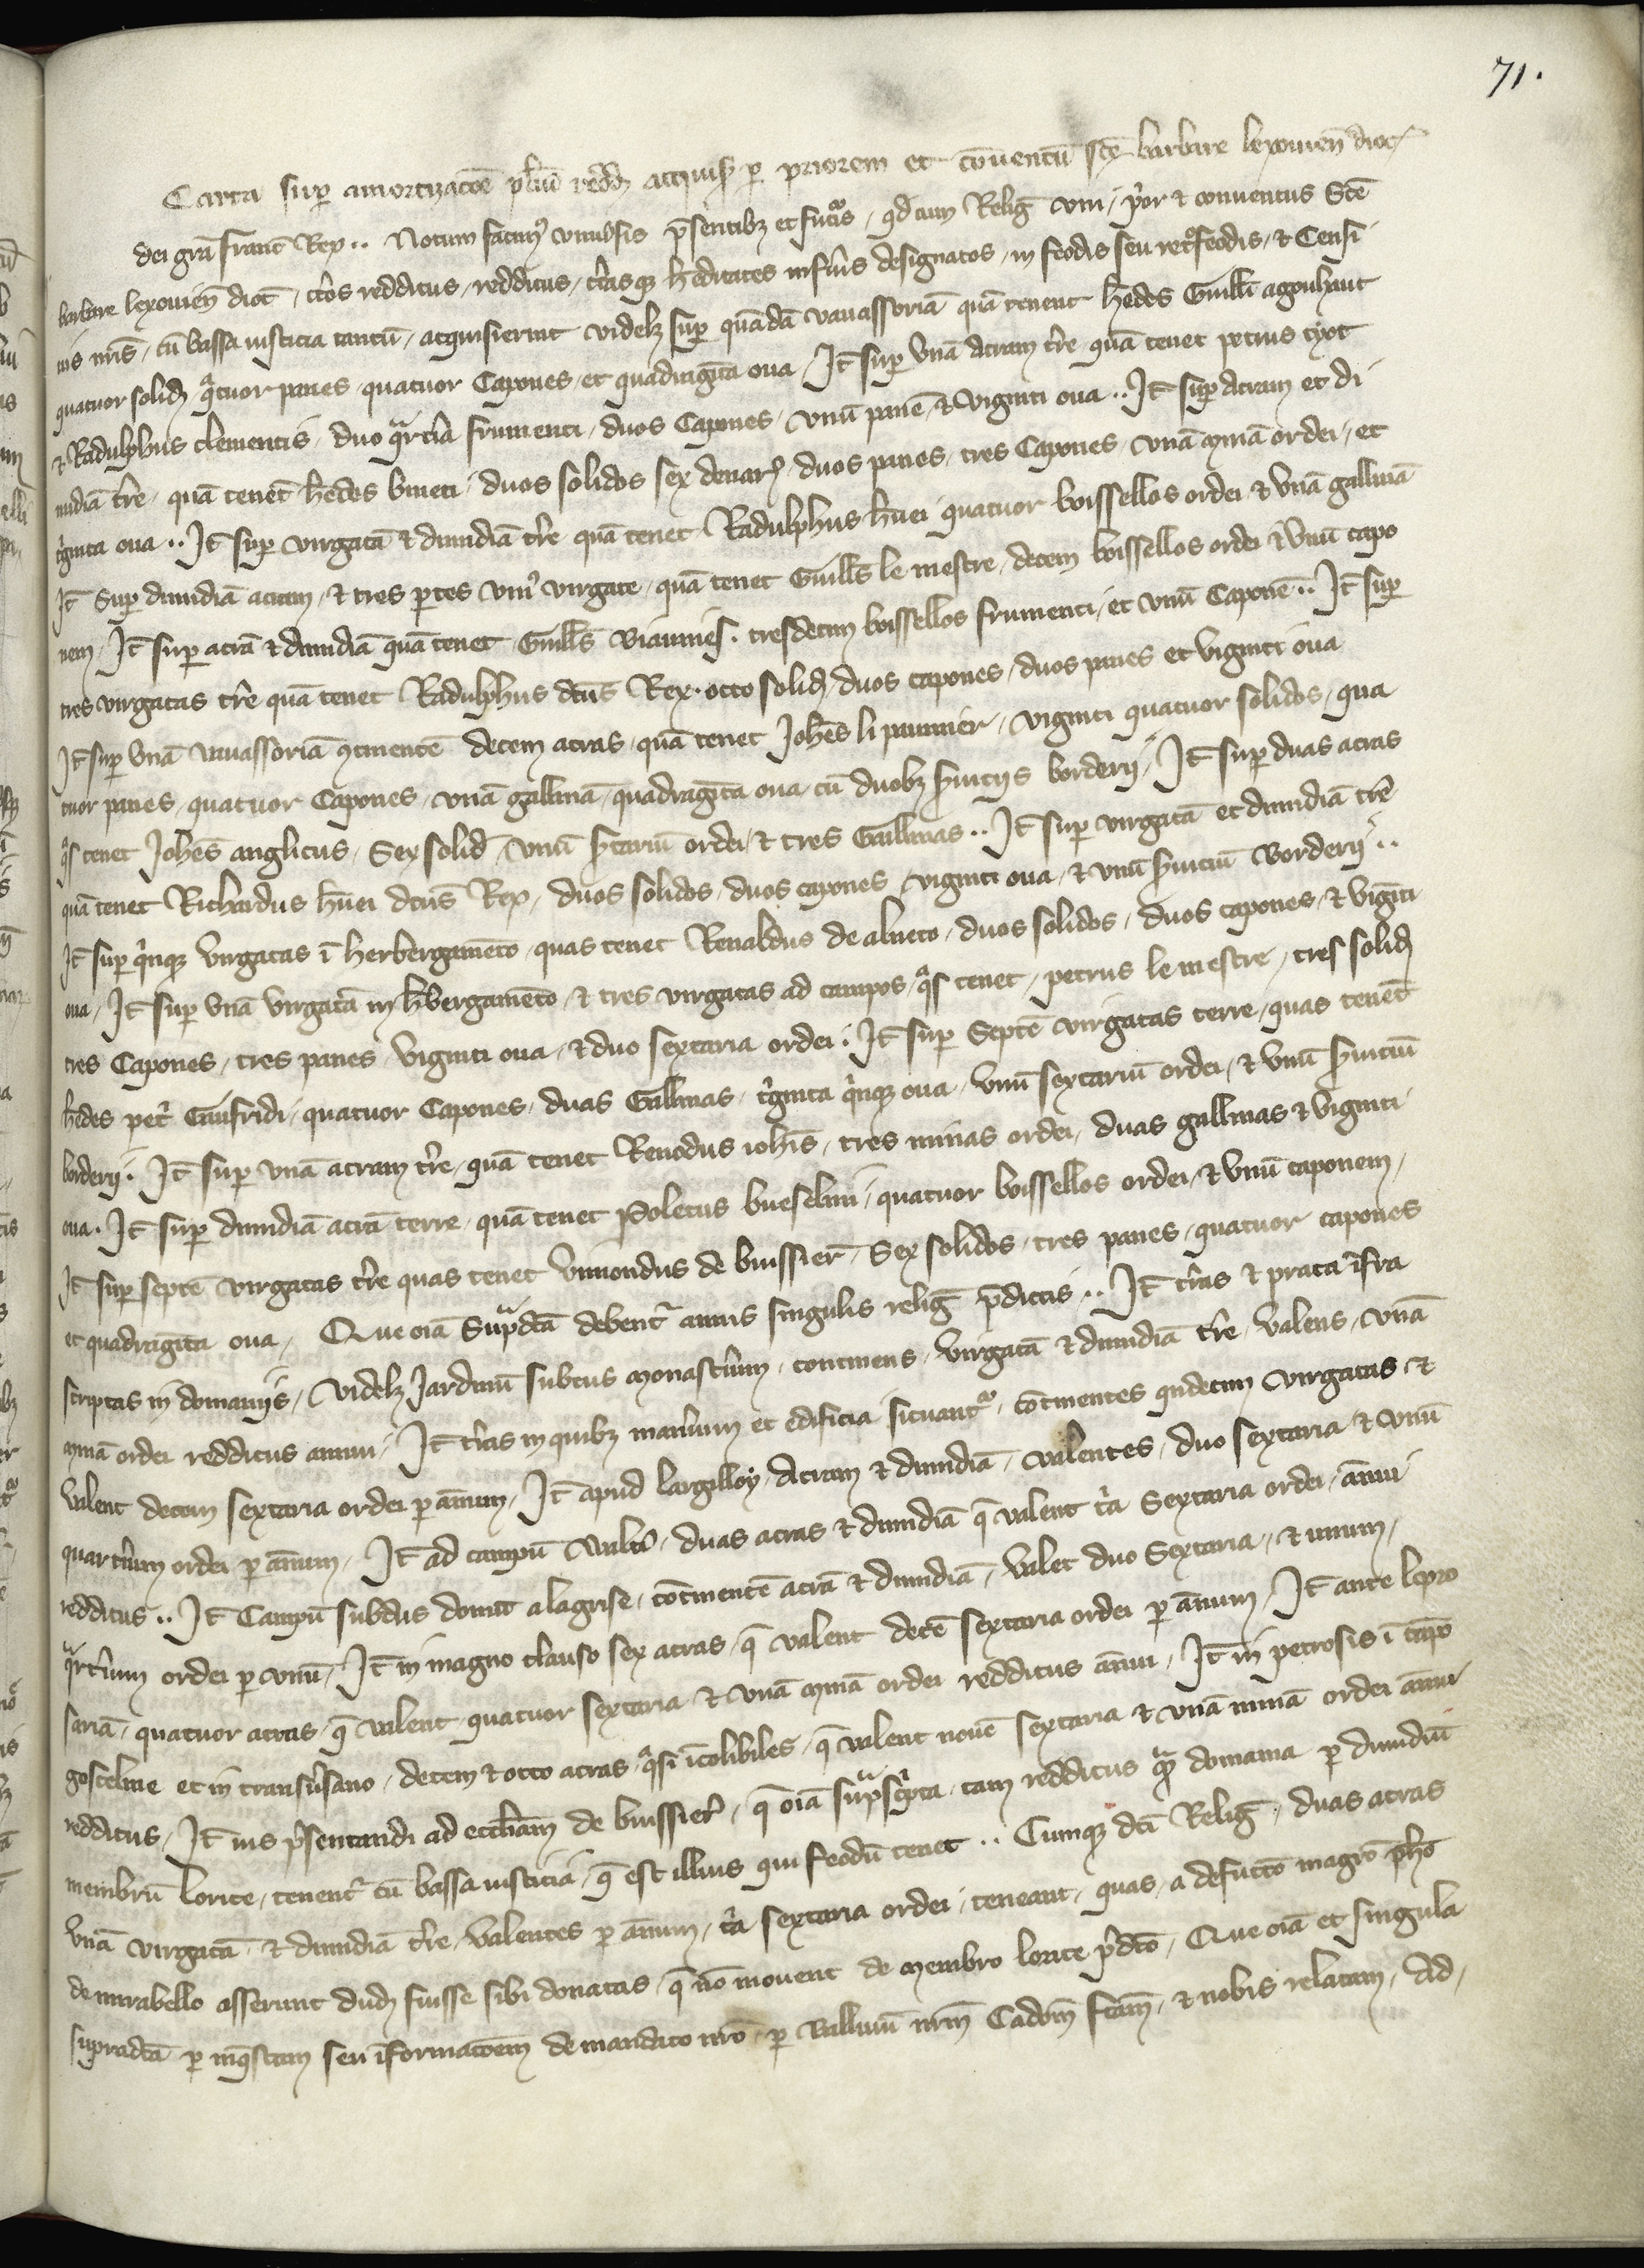 71.
Carta sup amortizacōe pl̄iū redd acquis p priorem et conuentū sc̄e barbare lexouien dioc̄
dei gr̄a Franc̄ Rex.. Notum facimꝰ vniūsis p̄sentibꝫ et futˢis, qd cum Relig viri, p̄or ⁊ conuentus Sc̄e
barbare lexouien̄ dioc̄, c̄tos redditus, redditus, tr̄asqꝫ hēditates inf̄ius designatos, in feodis seu ret̊feodis, ⁊ Censi
uis nr̄is, cū bassa iusticia tantū, acquisierint videlꝫ sup quādā vauassoriā quā tenent hēdes Guill̄i agonhaut
quatuor solid, qᵃtuor panes, quatuor Capones, et quadragīta oua, It̄ sup vnā Acram tr̄e quā tenet petrus cyot
⁊ Radulphus clementis, duo qᵃrter̄ia frumenti, duos Capones, vnū panē, ⁊ viginti oua.. It̄ sup Acram et di
midiā tr̄e, quā tenēt hēdes bineti, duos solidos sex denar̄, duos panes, tres Capones, vnā minā ordei, et
tⁱginta oua.. It̄ sup virgatā ⁊ dimidiā tr̄e quā tenet Radulphus h̄uei quatuor boissellos ordei ⁊ vnā gallinā
It̄ Sup dimidiā acram, ⁊ tres ptes vniꝰ virgate, quā tenet Guill̄s le mestre, decem boissellos ordei ⁊ vnū capo
nem, It̄ sup acrā ⁊ dimidiā quā tenet Guill̄s viaumes. tresdecim boissellos frumenti, et vnū Caponē.. It̄ sup
tres virgatas tr̄e quā tenet Radulphus dc̄us Rex. octo solid, duos capones, duos panes et viginti oua
It̄ sup vnā vauassoriā ꝯtinentē decem acras, quā tenet Joh̄es li paumier, viginti quatuor solidos, qua
tuor panes, quatuor Capones, vnā gallinā, quadragīta oua, cū duobꝫ s̄uiciis borderij, It̄ sup duas acras
qᵃs tenet Joh̄es anglicus, Sex solid, vnū s̄tariū ordei, ⁊ tres Gallinas.. It̄ sup virgatā et dimidiā tr̄e
quā tenet Richardus h̄uei dc̄us Rex, duos solidos, duos capones, viginti oua, ⁊ vnū s̄uiciū Borderij..
It̄ sup qⁱnqꝫ virgatas ī herbergamēto, quas tenet Renaldus de alneto, duos solidos, duos capones, ⁊ vigīti
oua, It̄ sup vnā virgatā in h̄bergamēto, ⁊ tres virgatas ad campos, qᵃs tenet, petrus le mestre, tres solid
tres Capones, tres panes, viginti oua, ⁊ duo sextaria ordei. It̄ sup Septē virgatas terre, quas tenēt
h̄edes pet̄ Gaufridi, quatuor Capones, duas Gallinas, tⁱginta qⁱnqꝫ oua, vnū sextariū ordei, ⁊ vnū s̄uiciū
borderij. It̄ sup vnā acram tr̄e, quā tenet Renodus ioh̄is, tres minas ordei, duas gallinas ⁊ viginti
oua. It̄ sup dimidiā acrā terre, quā tenet Poletus bueselini, quatuor boissellos ordei, ⁊ vnū caponem,
It̄ sup septē virgatas tr̄e quas tenet vimondus de buissier̄, Sex solidos, tres panes, quatuor capones
et quadragīta oua, Que oīa Supᵃdc̄a debent̄ annis singulis reliḡ p̄dictis.. It̄ tr̄as ⁊ prata īfra
scriptas in domaniis, videlꝫ Jardinū subtus monast̄ium, continens, virgatā ⁊ dimidiā tr̄e, valens, vnā
minā ordei redditus annui, It̄ tr̄as in quibꝫ man̄ium et edificia situantˢ, cōtinentes qndecim virgatas, ⁊
valent decem sextaria ordei p annum, It̄ apud largilloy, Acram ⁊ dimidiā, valentes, duo sextaria ⁊ vnū
quart̄ium ordei p annum, It̄ ad campū Walt̄i, duas acras ⁊ dimidiā q̄ valent tⁱa Sextaria ordei, annui
redditus.. It̄ Campū subdus domū alagrise, cōtinentē acrā ⁊ dimidiā, valet duo Sextaria, ⁊ unum,
qᵃrt̄ium ordei p vnū, It̄ in magno clauso sex acras, q̄ valent decē sextaria ordei p annum, It̄ ante lepro
sariā, quatuor acras, q̄ valent, quatuor sextaria ⁊ vnā minā ordei redditus annui, It̄ in petrosis ī capo
gosceline et in transūsano, decem ⁊ octo acras, qᵃsi īcolibiles, q̄ valent nouē sextaria ⁊ vnā minā ordei annui
redditus, It̄ ius p̄sentandi ad eccl̄iam de buissier̄, q̄ oīa supᵃsc̄pta, tam redditus qᵃm domania p dimidiū
membrū Lorice, tenentˢ cū bassa iusticia, q̄ est illius qui feodū tenet.. Cumqꝫ dc̄i Reliḡ, duas acras
vnā virgatā, ⁊ dimidiā tr̄e, valentes p annum, tⁱa sextaria ordei, teneant, quas, a defūcto magr̄o ph̄o
de mirabello asserunt dudū fuisse sibi donatas, q̄ nō mouent de membro lorice p̄dc̄o, Que oīa et singula
supradc̄a p inq̄stam seu īformacōem de mandato nr̄o, p Balliuū nr̄m Cadom̄ fc̄am, ⁊ nobis relatam, Ad,